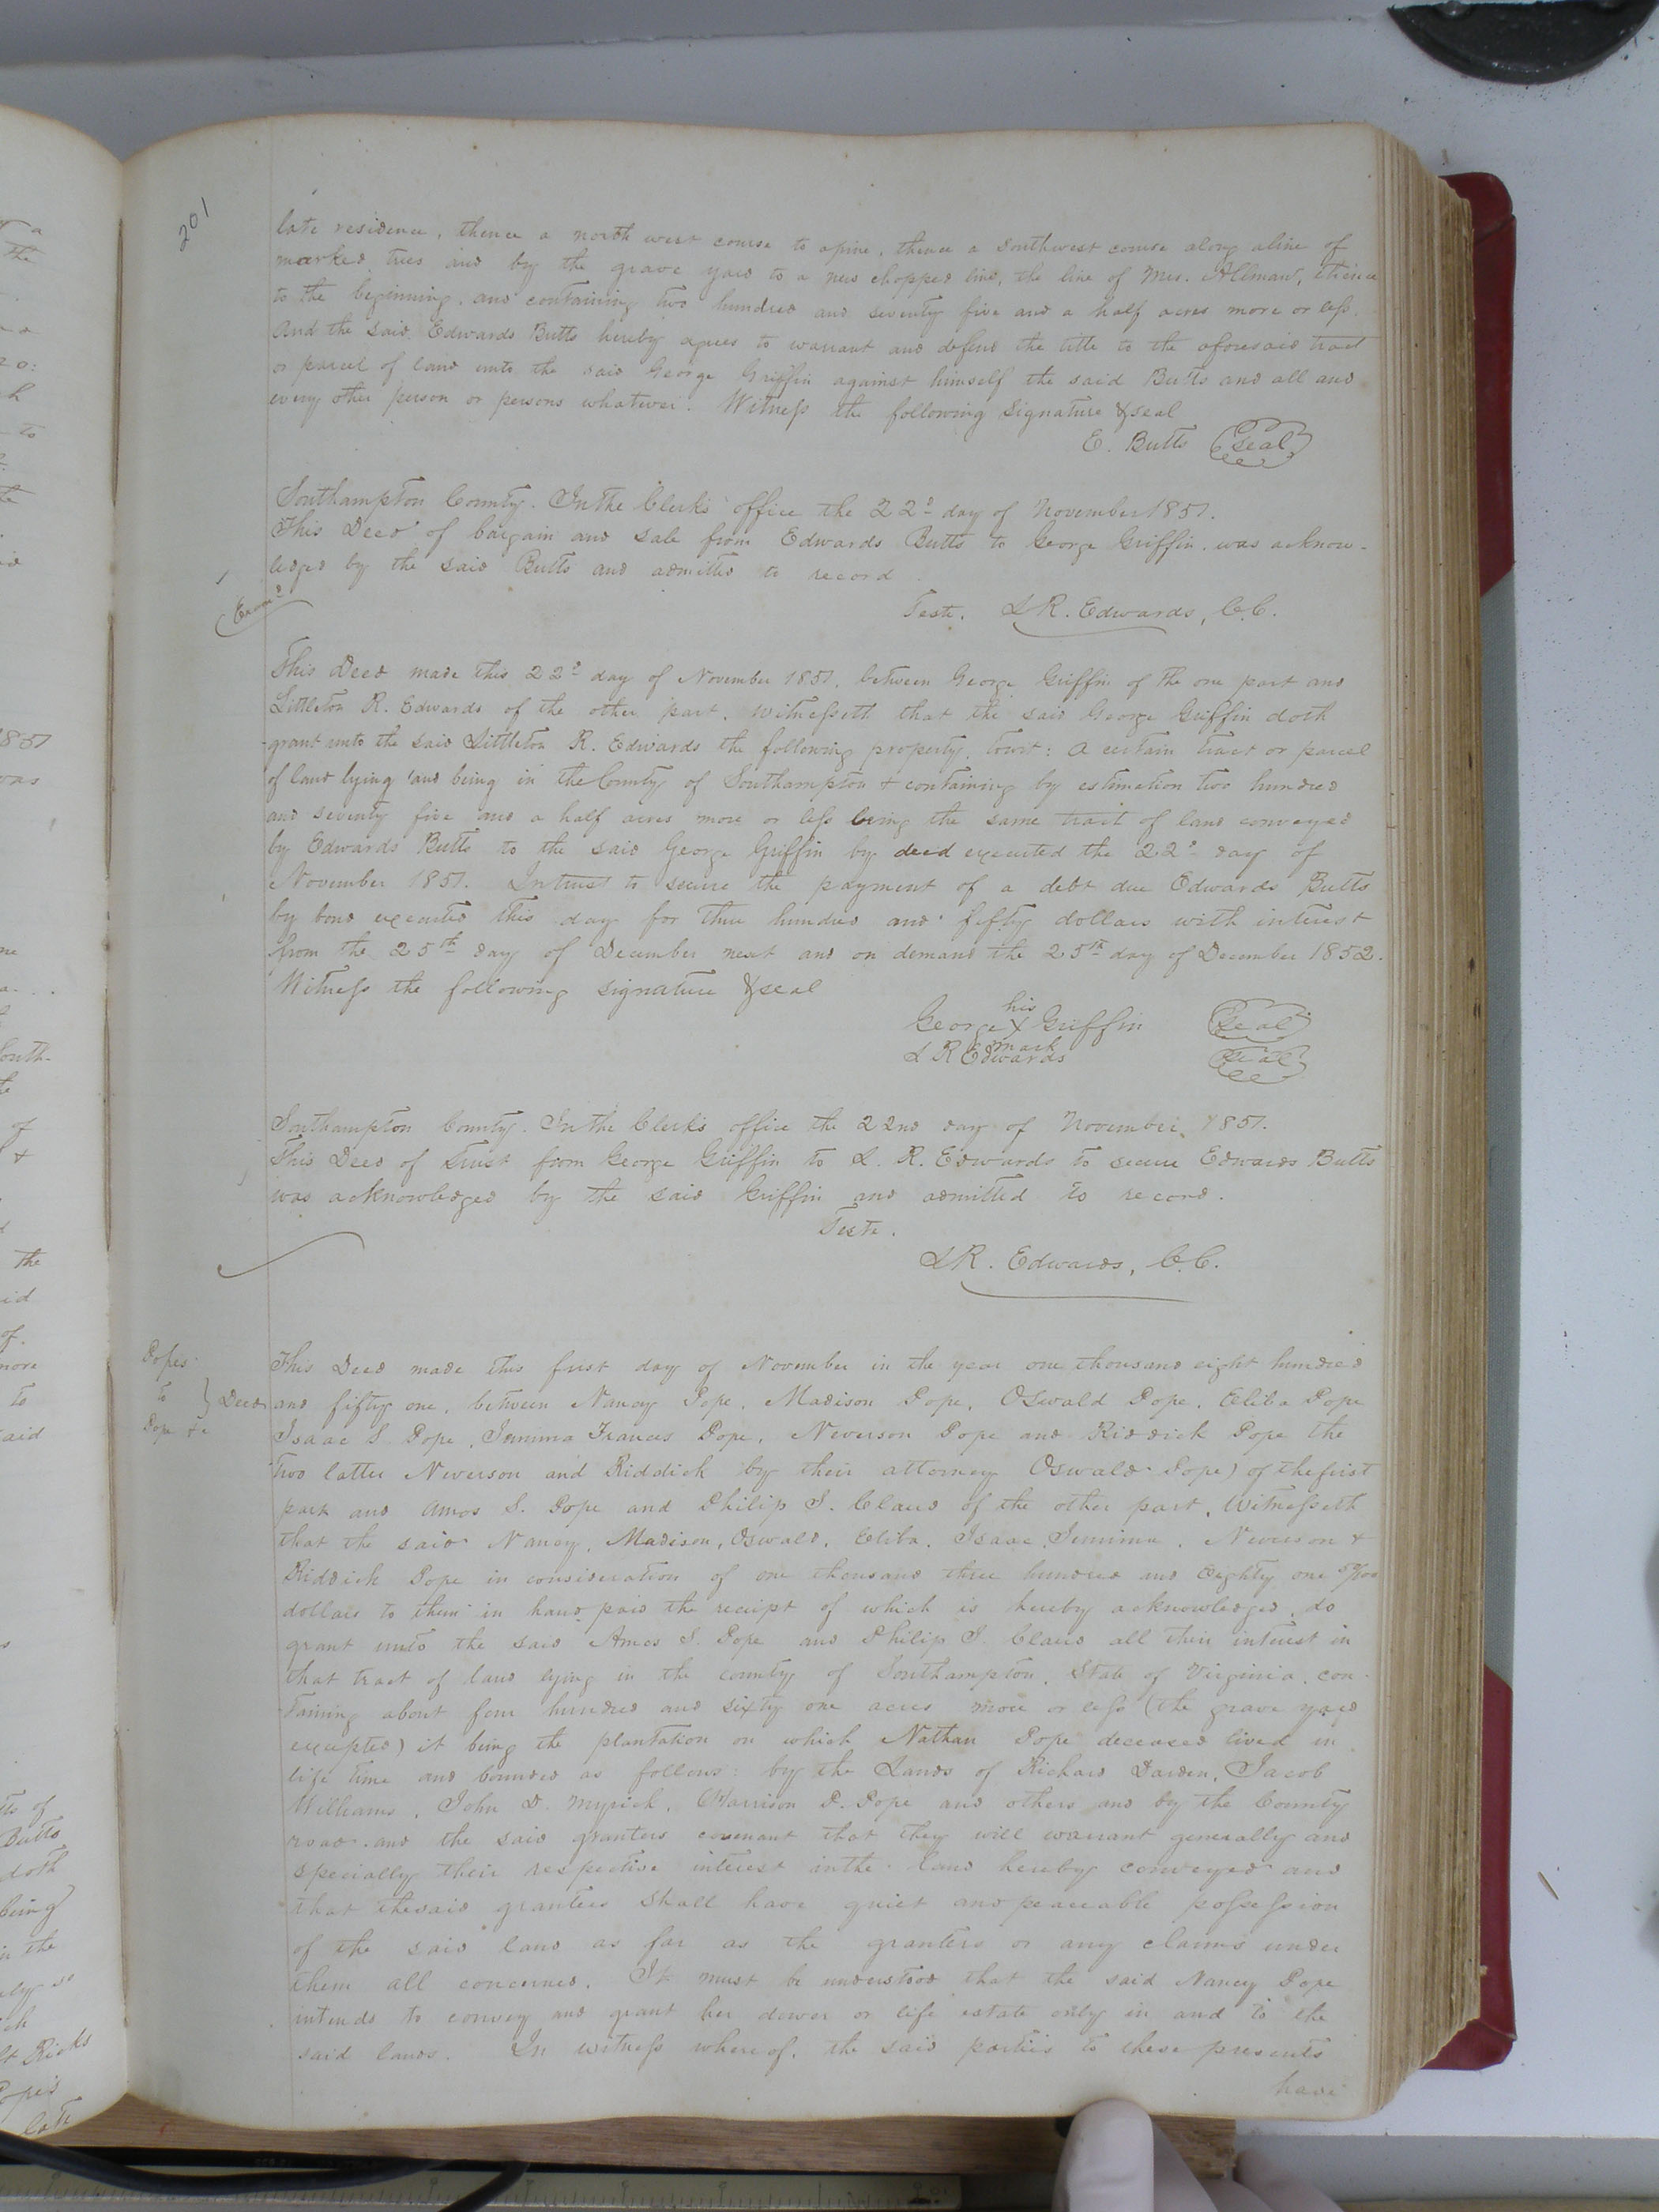 201
late residence, thence a north west course to a pine, thence a southwest course along a line of
marked trees and by the grave yard to a new chopped line, the line of Mrs. Allman, thence
to the beginning, and containing two hundred and seventy five and a half acres more or less.
And the said Edwards Butts hereby agrees to warrant and defend the title to the aforesaid tract
or parcel of land unto the said George Griffin against himself the said Butts and all and
every other person or persons whatever. Witness the following signature & seal
E. Butts Seal
Southampton County. In the Clerk's office the 22d day of November 1851.
This Deed of bargain and sale from Edwards Butts to George Griffin was acknow-
ledged by the said Butts and admitted to record
Examd
Teste. L R. Edwards, C.C.
This Deed made this 22d day of November 1851. between George Griffin of the one part and
Littleton R. Edwards of the other part. Witnesseth that the said George Griffin doth
grant unto the said Littleton R. Edwards the following property, towit: A certain tract or parcel
of land lying and being in the County of Southampton + containing by estimation two hundred
and seventy five and a half acres more or less being the same tract of land conveyed
by Edwards Butts to the said George Griffin by deed executed the 22d day of
November 1851. In trust to secure the payment of a debt due Edwards Butts
by bond executed this day for three hundred and fifty dollars with interest
from the 25th day of December next and on demand the 25th day of December 1852.
Witness the following signature & seal
his
George X Griffin Seal
mark
L R Edwards Seal
Southampton County. In the Clerk's office the 22nd day of November 1851.
This Deed of Trust from George Griffin to L. R. Edwards to secure Edwards Butts
was acknowledged by the said Griffin and admitted to record.
Teste.
L R. Edwards, C.C.
Popes
to } Deed
Pope &c
This Deed made this first day of November in the year one thousand eight hundred
and fifty one, between Nancy Pope, Madison Pope, Oswald Pope, Eliba Pope
Isaac S. Pope, Jemima Frances Pope, Neverson Pope and Riddick Pope the
two latter Neverson and Riddick by their attorney Oswald Pope) of the first
part and Amos S. Pope and Philip J. Claud of the other part, Witnesseth
that the said Nancy, Madison, Oswald, Eliba, Isaac, Jemima, Neverson +
Riddick Pope in consideration of one thousand three hundred and Eighty one
dollars to them in hand paid the receipt of which is hereby acknowledged, do
grant unto the said Amos S. Pope and Philip J. Claud all their interest in
that tract of land lying in the county of Southampton, State of Virginia, con-
taining about four hundred and sixty one acres more or less (the grave yard
excepted) it being the plantation on which Nathan Pope deceased lived in
life time and bounded as follows: by the Lands of Richard Darden, Jacob
Williams, John D. Myrick, Harrison P. Pope and others and by the County
road. and the said granters covenant that they will warrant generally and
specially their respective interest in the land hereby conveyed and
that the said grantees shall have quiet and peaceable possession
of the said land as far as the granters or any claims under
them all concerned. It must be understood that the said Nancy Pope
intends to convey and grant her dower or life estate only in and to the
said lands. In witness whereof, the said parties to these presents
have